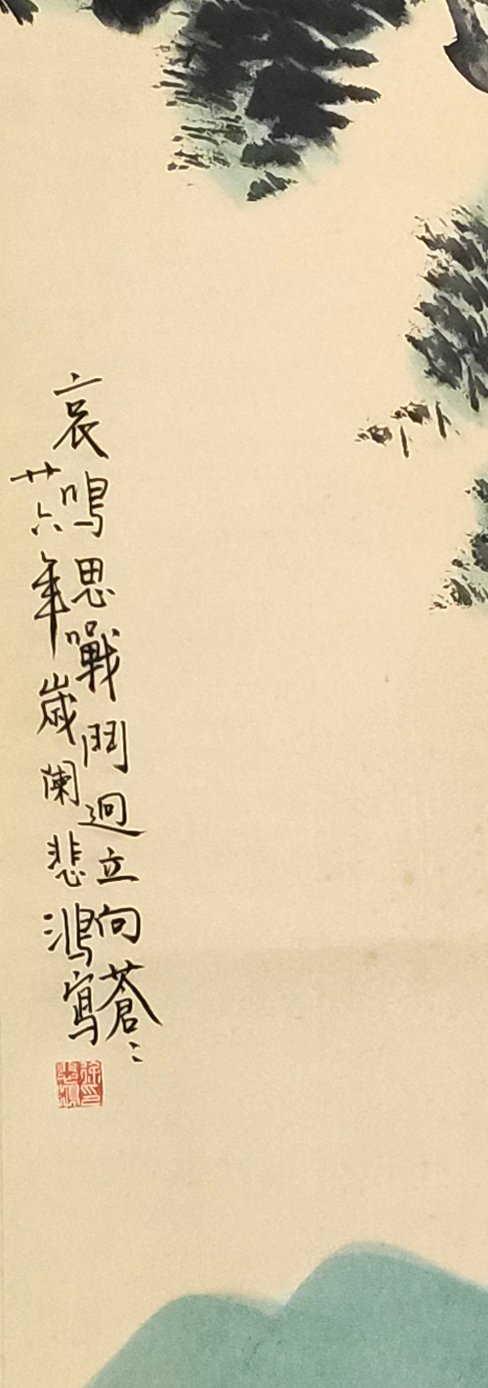 哀鳴思戰鬥迥立向蒼〻
廿六年歲闌悲鴻寫